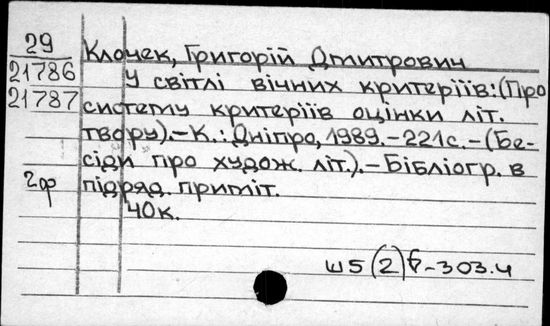 29
21786
21787
2ф
Клочек, Григорій Дмитрович
У світлі вічних критеріїв: (Про
систему критеріїв оцінки літ.
твору).-К.: Дніпро, 1989.-221с.-(Бе-
сіди про худож. літ.).-Бібліогр. в
підряд. приміт.
40к.
Ш5(2)6-303.4